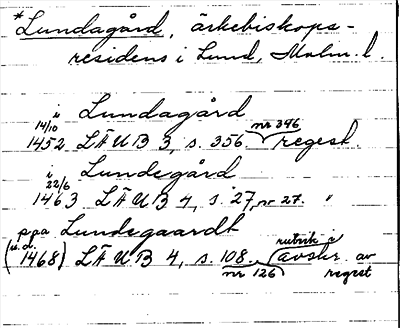 *Lundagård, ärkebiskops-
residens i Lund, Malm. l.
i Lundagård
14/10 nr 346
1452 LÄUB 3, s. 356. regest.
i Lundsgård
22/6
1463 LÄUB 4, s. 27, nr 27. "
ppa Lundsgaardt
(u.d. rubrik i
1468) LÄUB 4, s. 108. avskr. av
nr 126 regest